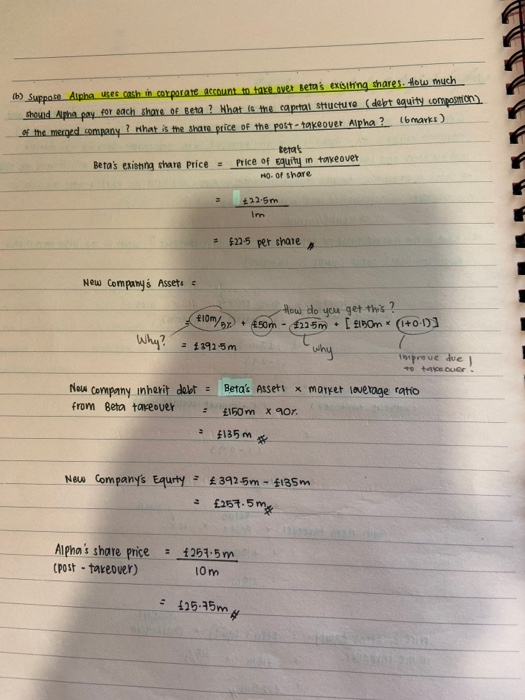 (b) Suppose Alpha uses cash in corporate account to take over Beta's existing shares. How much
should Alpha pay for each share of Beta ? What is the capital structure (debt equity composition)
of the merged company ? What is the share price of the post-takeover Alpha ? (6marks)
Beta's
Beta's existing share Price = Price of Equity in takeover
No. of share
= £22.5m
1m
= £22.5 per share
New Company's Assets =
How do you get this ?
= £10m/5% + £50m - £22.5m + [£150m × (1+0.1)]
Why? why
= £392.5m
improve due
to takeover!
New company inherit debt = Beta's Assets × market leverage ratio
from Beta takeover = £150m × 90%
= £135m
New Company's Equity = £392.5m - £135m
= £257.5m
Alpha's share price = £257.5m
(post - takeover) 10m
= £25.75m